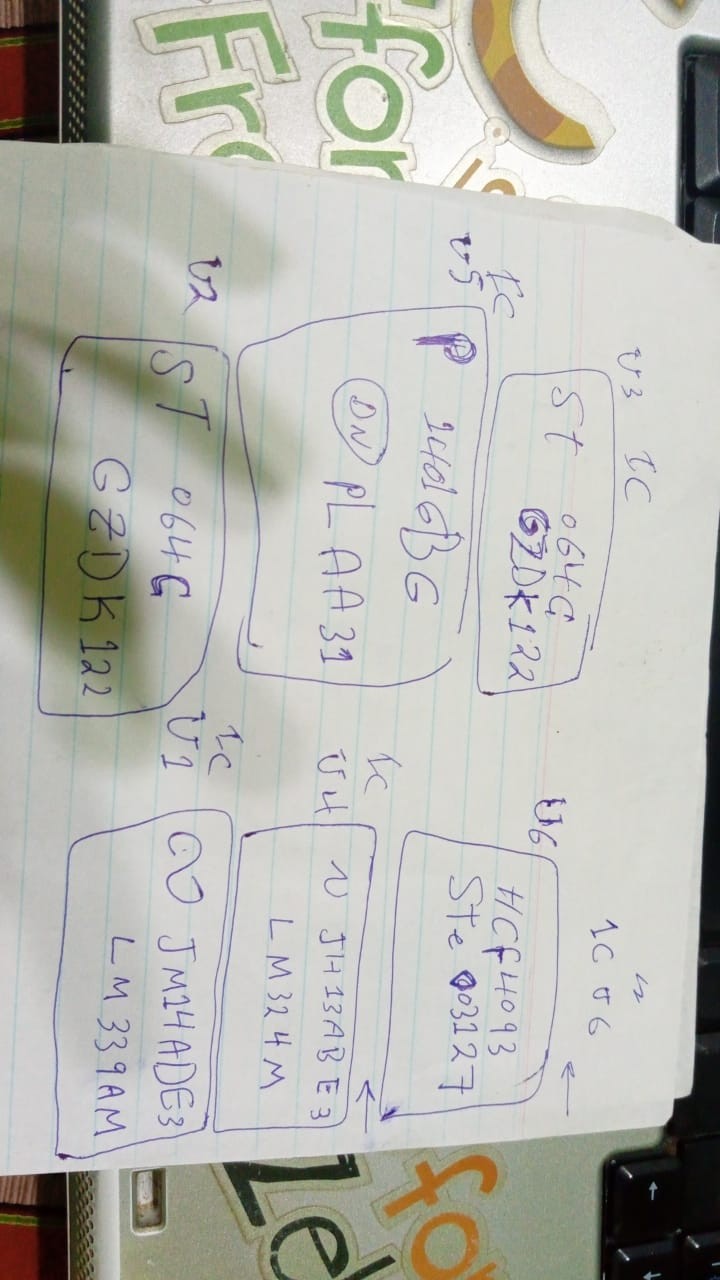 U3 IC
St 064G
GZDK122
IC
U5
P 14dG3G
DN PLAA31
U2
ST 064G
GZDK122
IC U6
U6
HCF4093
Ste 03127
IC
U4
JH13ABE3
LM324M
IC
U1
JM14ADE3
LM339AM
for
Fre
fo
Ze